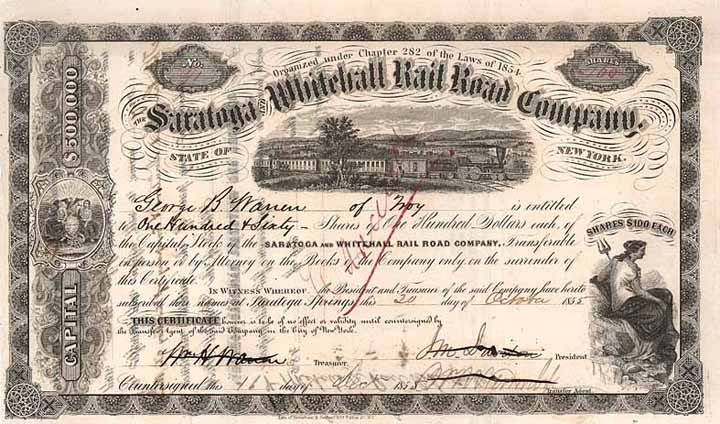 No.
Organized under Chapter 282 of the Laws of 1854.
SHARES
THE Saratoga AND Whitehall Rail Road Company.
STATE OF NEW YORK.
CAPITAL $500,000
George B Warren of Troy is entitled
to One Hundred & Sixty - Shares of One Hundred Dollars each, of
the Capital Stock of the SARATOGA AND WHITEHALL RAIL ROAD COMPANY, Transferable
in person or by Attorney on the Books of the Company only on the surrender of
this Certificate.
SHARES $100 EACH
IN WITNESS WHEREOF the President and Treasurer of the said Company have hereto
subscribed their names at Saratoga Springs, this 20 day of October 1855
THIS CERTIFICATE however is to be of no effect or validity until countersigned by
the Transfer Agent of the said Company in the City of New York.
Treasurer President
Countersigned this day of 1855
Transfer Agent